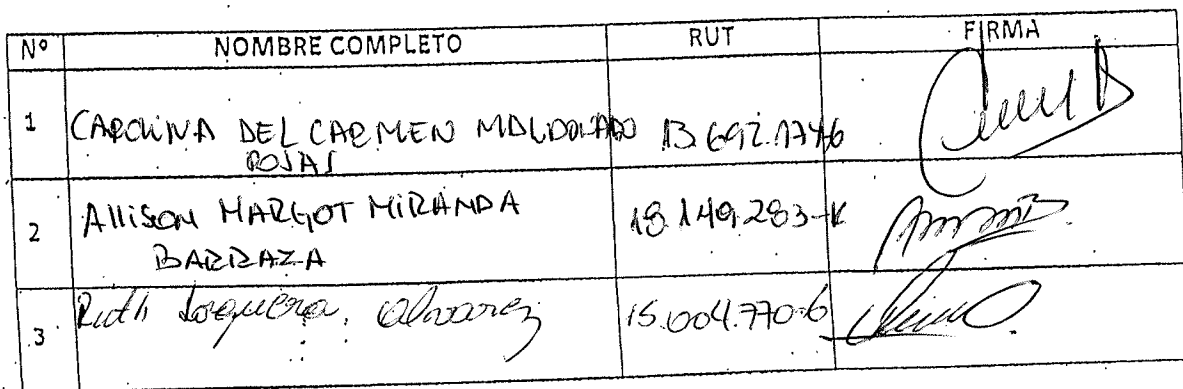 Nº NOMBRE COMPLETO RUT FIRMA
1 CAROLINA DEL CARMEN MALDONADO 13.692.174-6
ROJAS
2 Allison MARGOT MIRANDA 18.149.283-K
BARRAZA
3 Ruth Jorquera Alvarez 15.004.770-6